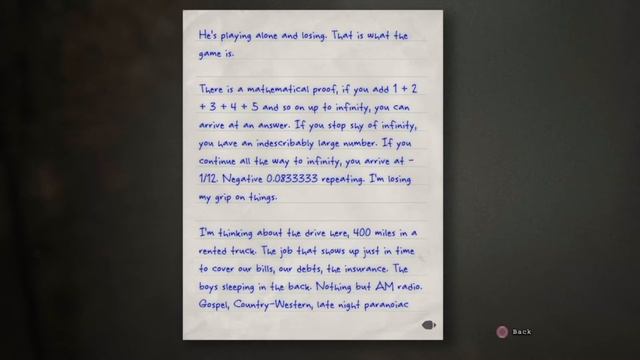 He's playing alone and losing. That is what the
game is.
There is a mathematical proof, if you add 1 + 2
+ 3 + 4 + 5 and so on up to infinity, you can
arrive at an answer. If you stop shy of infinity,
you have an indescribably large number. If you
continue all the way to infinity, you arrive at -
1/12. Negative 0.0833333 repeating. I'm losing
my grip on things.
I'm thinking about the drive here, 400 miles in a
rented truck. The job that shows up just in time
to cover our bills, our debts, the insurance. The
boys sleeping in the back. Nothing but AM radio.
Gospel, Country-Western, late night paranoiac
Back